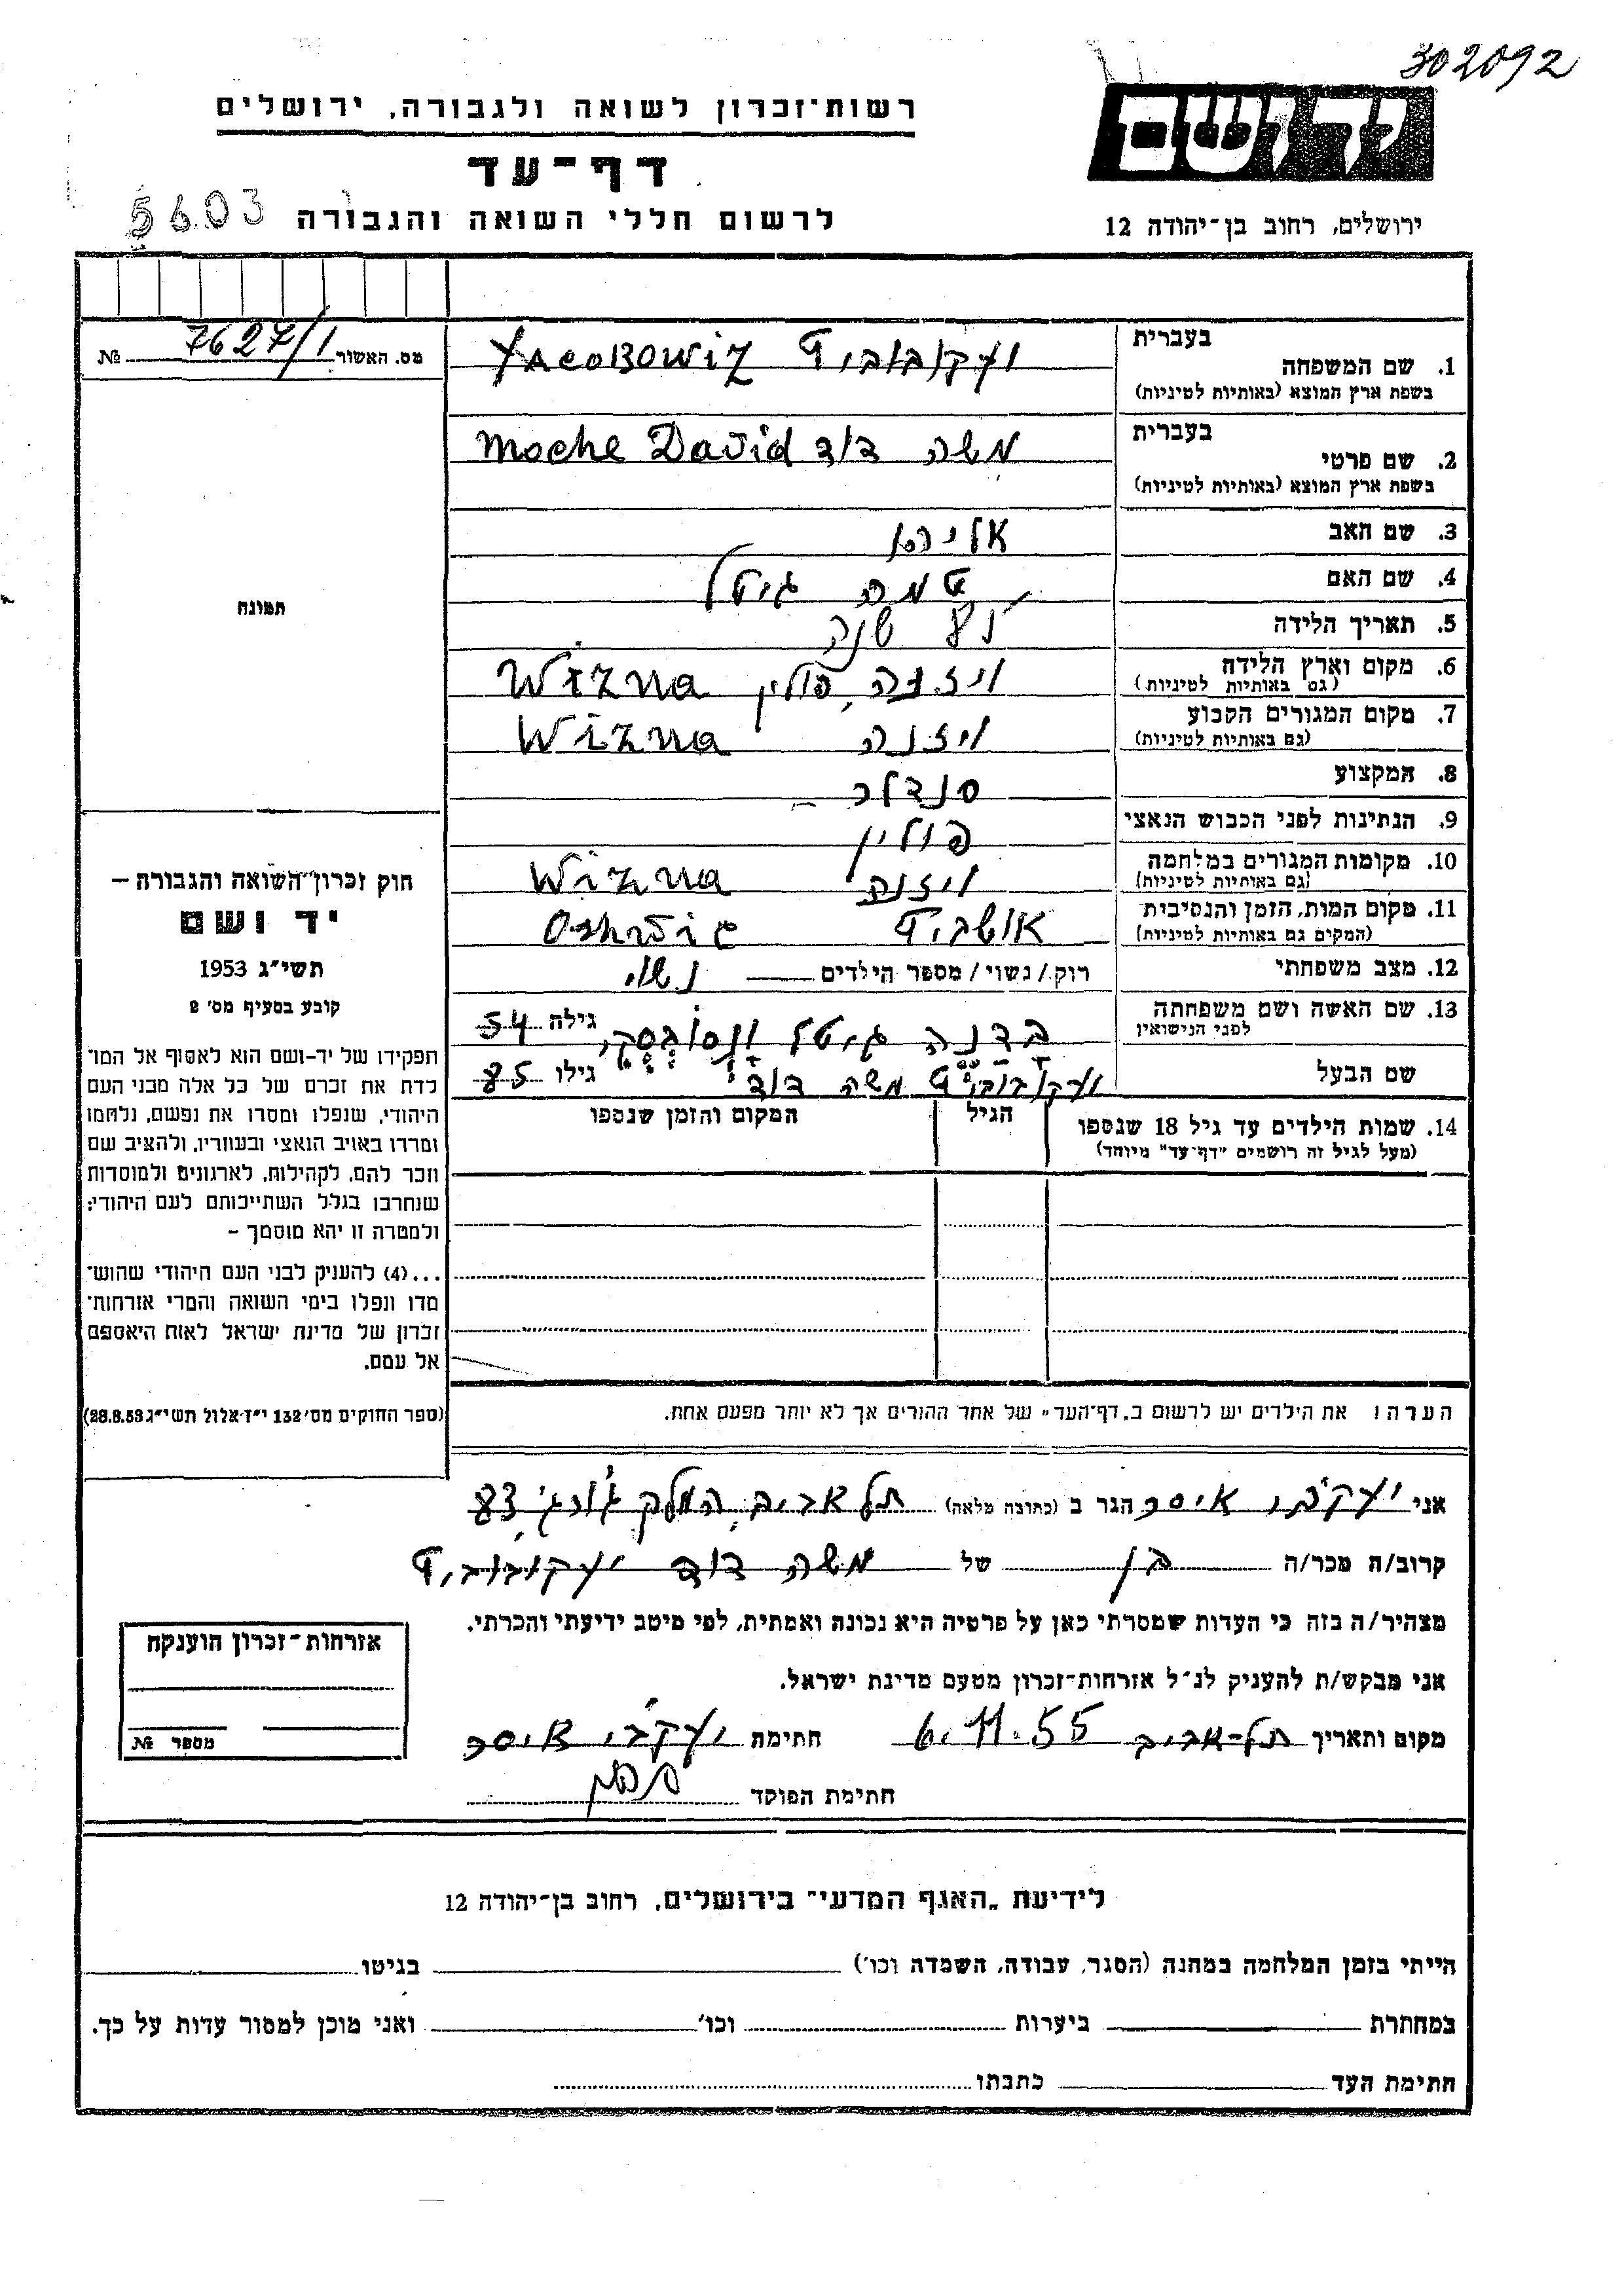 302092
יד ושם
רשות-זכרון לשואה ולגבורה, ירושלים
דף-עד
לרשום חללי השואה והגבורה
5603
ירושלים, רחוב בן-יהודה 12
מס. האשור 7627/1 №
בעברית
1. שם המשפחה
בשפת ארץ המוצא (באותיות לטיניות)
יעקובוביץ YacoBowiz
בעברית
2. שם פרטי
בשפת ארץ המוצא (באותיות לטיניות)
משה דוד Moche David
3. שם האב
4. שם האם גיטל
5. תאריך הלידה שנה
6. מקום וארץ הלידה ויזנה, פולין Wizna
(גם באותיות לטיניות)
7. מקום המגורים הקבוע ויזנה Wizna
(גם באותיות לטיניות)
8. המקצוע סנדלר
9. הנתינות לפני הכבוש הנאצי פולין
10. מקומות המגורים במלחמה ויזנה Wizna
(גם באותיות לטיניות)
11. מקום המות, הזמן והנסיבות אושביץ
(המקום גם באותיות לטיניות)
12. מצב משפחתי רוק/נשוי/מספר הילדים נשוי
13. שם האשה ושם משפחתה גיטל גילה 54
לפני הנישואין
שם הבעל יעקובוביץ משה דוד גילו 85
14. שמות הילדים עד גיל 18 שנספו הגיל המקום והזמן שנספו
(מעל לגיל זה רושמים "דף-עד" מיוחד)
הערה: את הילדים יש לרשום ב"דף-העד" של אחד ההורים אך לא יותר מפעם אחת.
תמונה
חוק זכרון השואה והגבורה –
יד ושם
תשי"ג 1953
קובע בסעיף מס' 2
תפקידו של יד-ושם הוא לאסוף אל המו-
לדת את זכרם של כל אלה מבני העם
היהודי, שנפלו ומסרו את נפשם, נלחמו
ומרדו באויב הנאצי ובעוזריו, ולהציב שם
וזכר להם, לקהילות, לארגונים ולמוסדות
שנחרבו בגלל השתייכותם לעם היהודי;
ולמטרה זו יהא מוסמך –
...(4) להעניק לבני העם היהודי שהוש-
מדו ונפלו בימי השואה והמרי אזרחות-
זכרון של מדינת ישראל לאות היאספם
אל עמם.
(ספר החוקים מס' 132 י"ז אלול תשי"ג 28.8.53)
אני יעקבי איסר הגר ב (כתובת מלאה) תל אביב המלך ג'ורג' 83
קרוב/ה מכר/ה בן של משה דוד יעקובוביץ
מצהיר/ה בזה כי העדות שמסרתי כאן על פרטיה היא נכונה ואמתית, לפי מיטב ידיעתי והכרתי.
אני מבקש/ת להעניק לנ"ל אזרחות-זכרון מטעם מדינת ישראל.
מקום ותאריך תל-אביב 6.11.55 חתימת יעקבי איסר
חתימת הפוקד
אזרחות-זכרון הוענקה
מספר №
לידיעת "האגף המדעי" בירושלים, רחוב בן-יהודה 12
הייתי בזמן המלחמה במחנה (הסגר, עבודה, השמדה וכו') בגיטו
במחתרת ביערות וכו' ואני מוכן למסור עדות על כך.
חתימת העד כתבתו